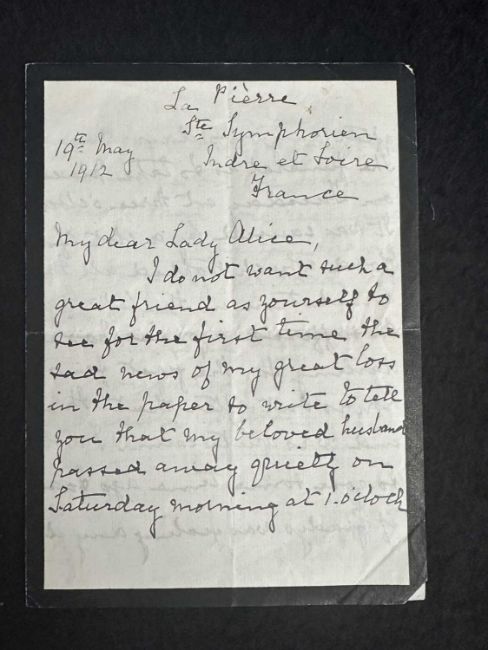 La Pièrre
Ste Symphorien
19th May
1912
Indre et Loire
France
My dear Lady Alice,
I do not want such a
great friend as yourself to
see for the first time the
sad news of my great loss
in the paper so write to tell
you that my beloved husband
passed away quietly on
Saturday morning at 1.o'clock